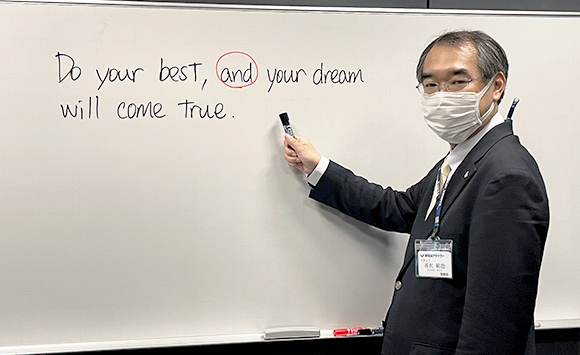 Do your best, and your dream
will come true.